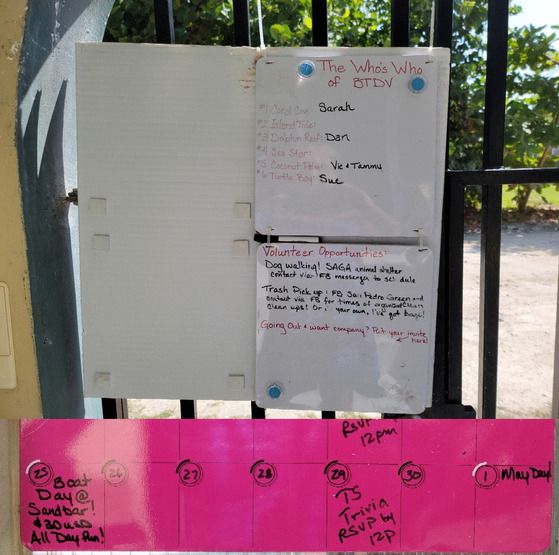 The Who's Who
of BTDV
#1 Coral Cove: Sarah
#2 Island Tide:
#3 Dolphin Reef: Dan
#4 Sea Star:
#5 Coconut Palm: Vic + Tammy
#6 Turtle Bay: Sue
Volunteer Opportunities:
Dog walking! SAGA animal shelter
contact via FB messenger to schedule
Trash Pick up: FB San Pedro Green and
contact via FB for times of organized clean
clean ups! Or, your own, I've got bags!
Going Out & want company? Put your invite
here!
RSVP
12pm
25 Boat
Day @
Sandbar!
$30 USD
All Day Fun!
26
27
28
29
TS
Trivia
RSVP by
12P
30
1 May Day